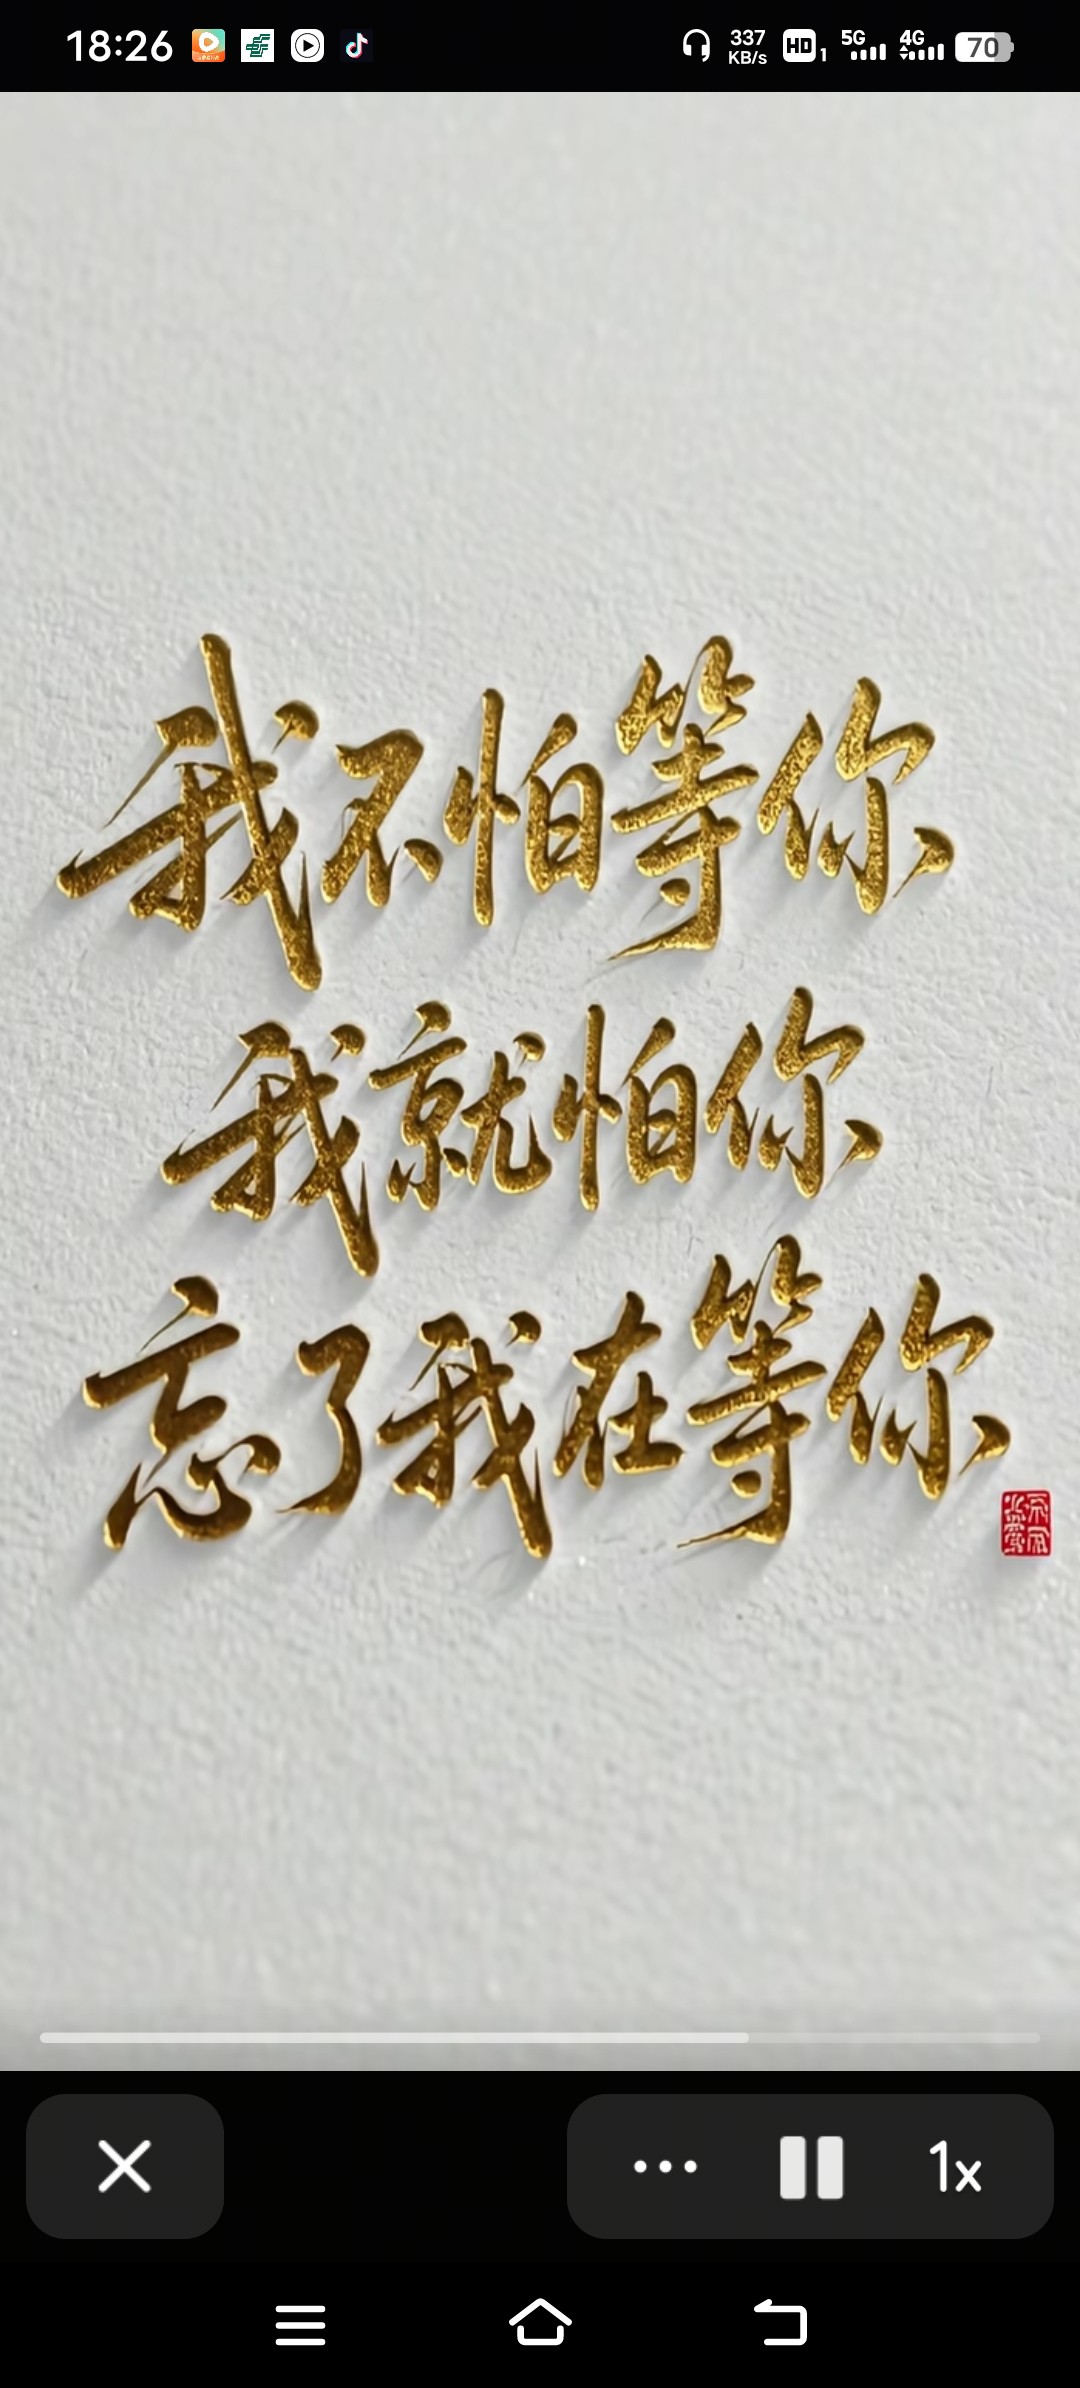 18:26
337
KB/s
HD 1
5G
4G
70
我不怕等你
我就怕你
忘了我在等你
1x